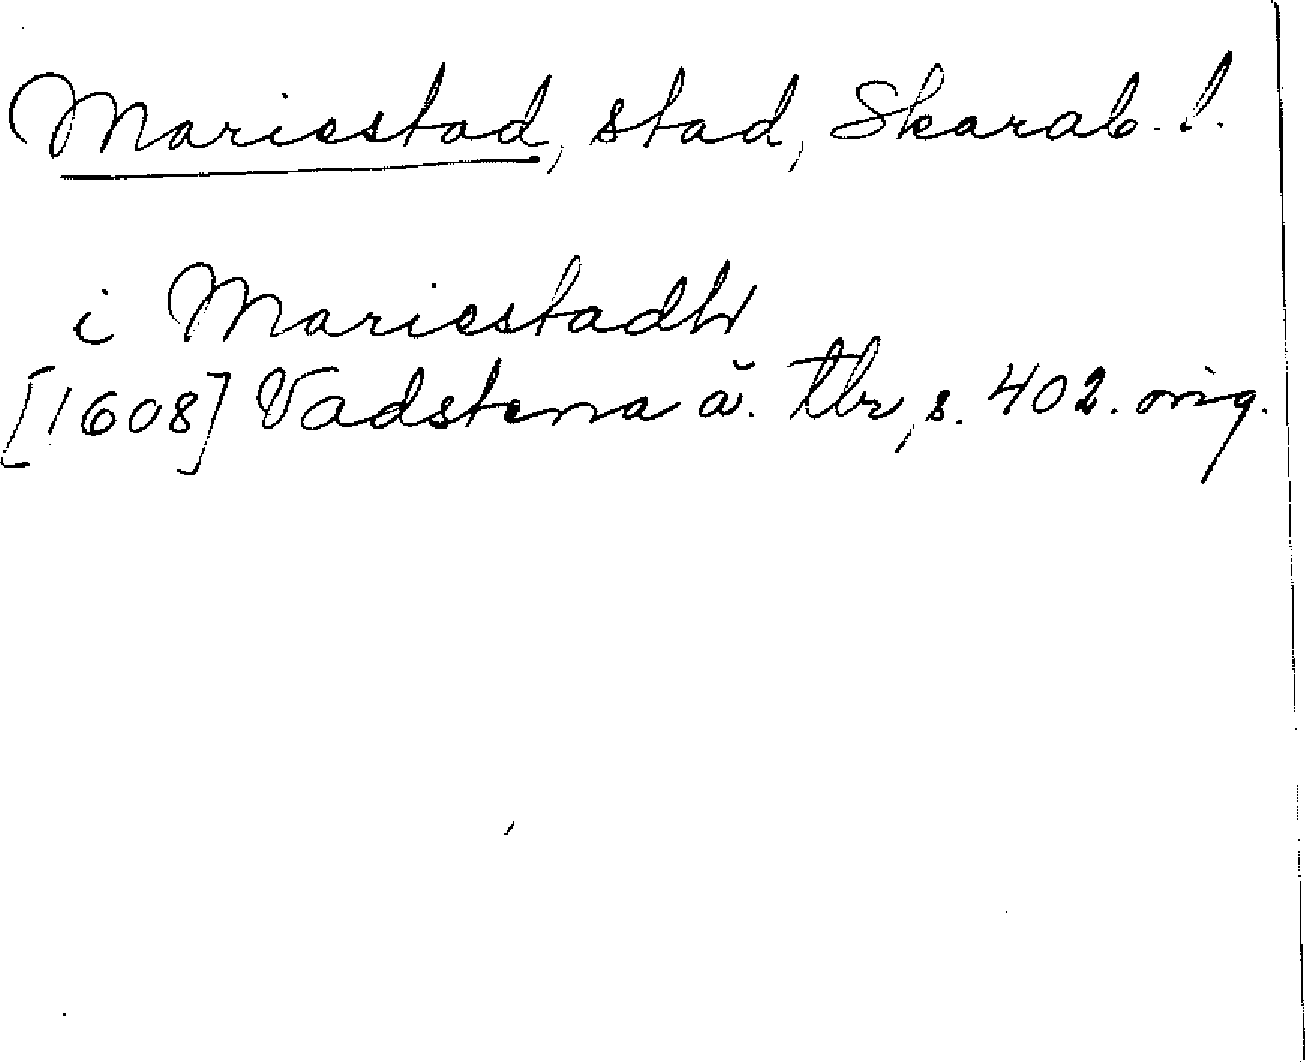 Mariestad, stad, Skarab. l.
i Mariestadh
[1608] Vadstena ä. tbr, s. 402. orig.